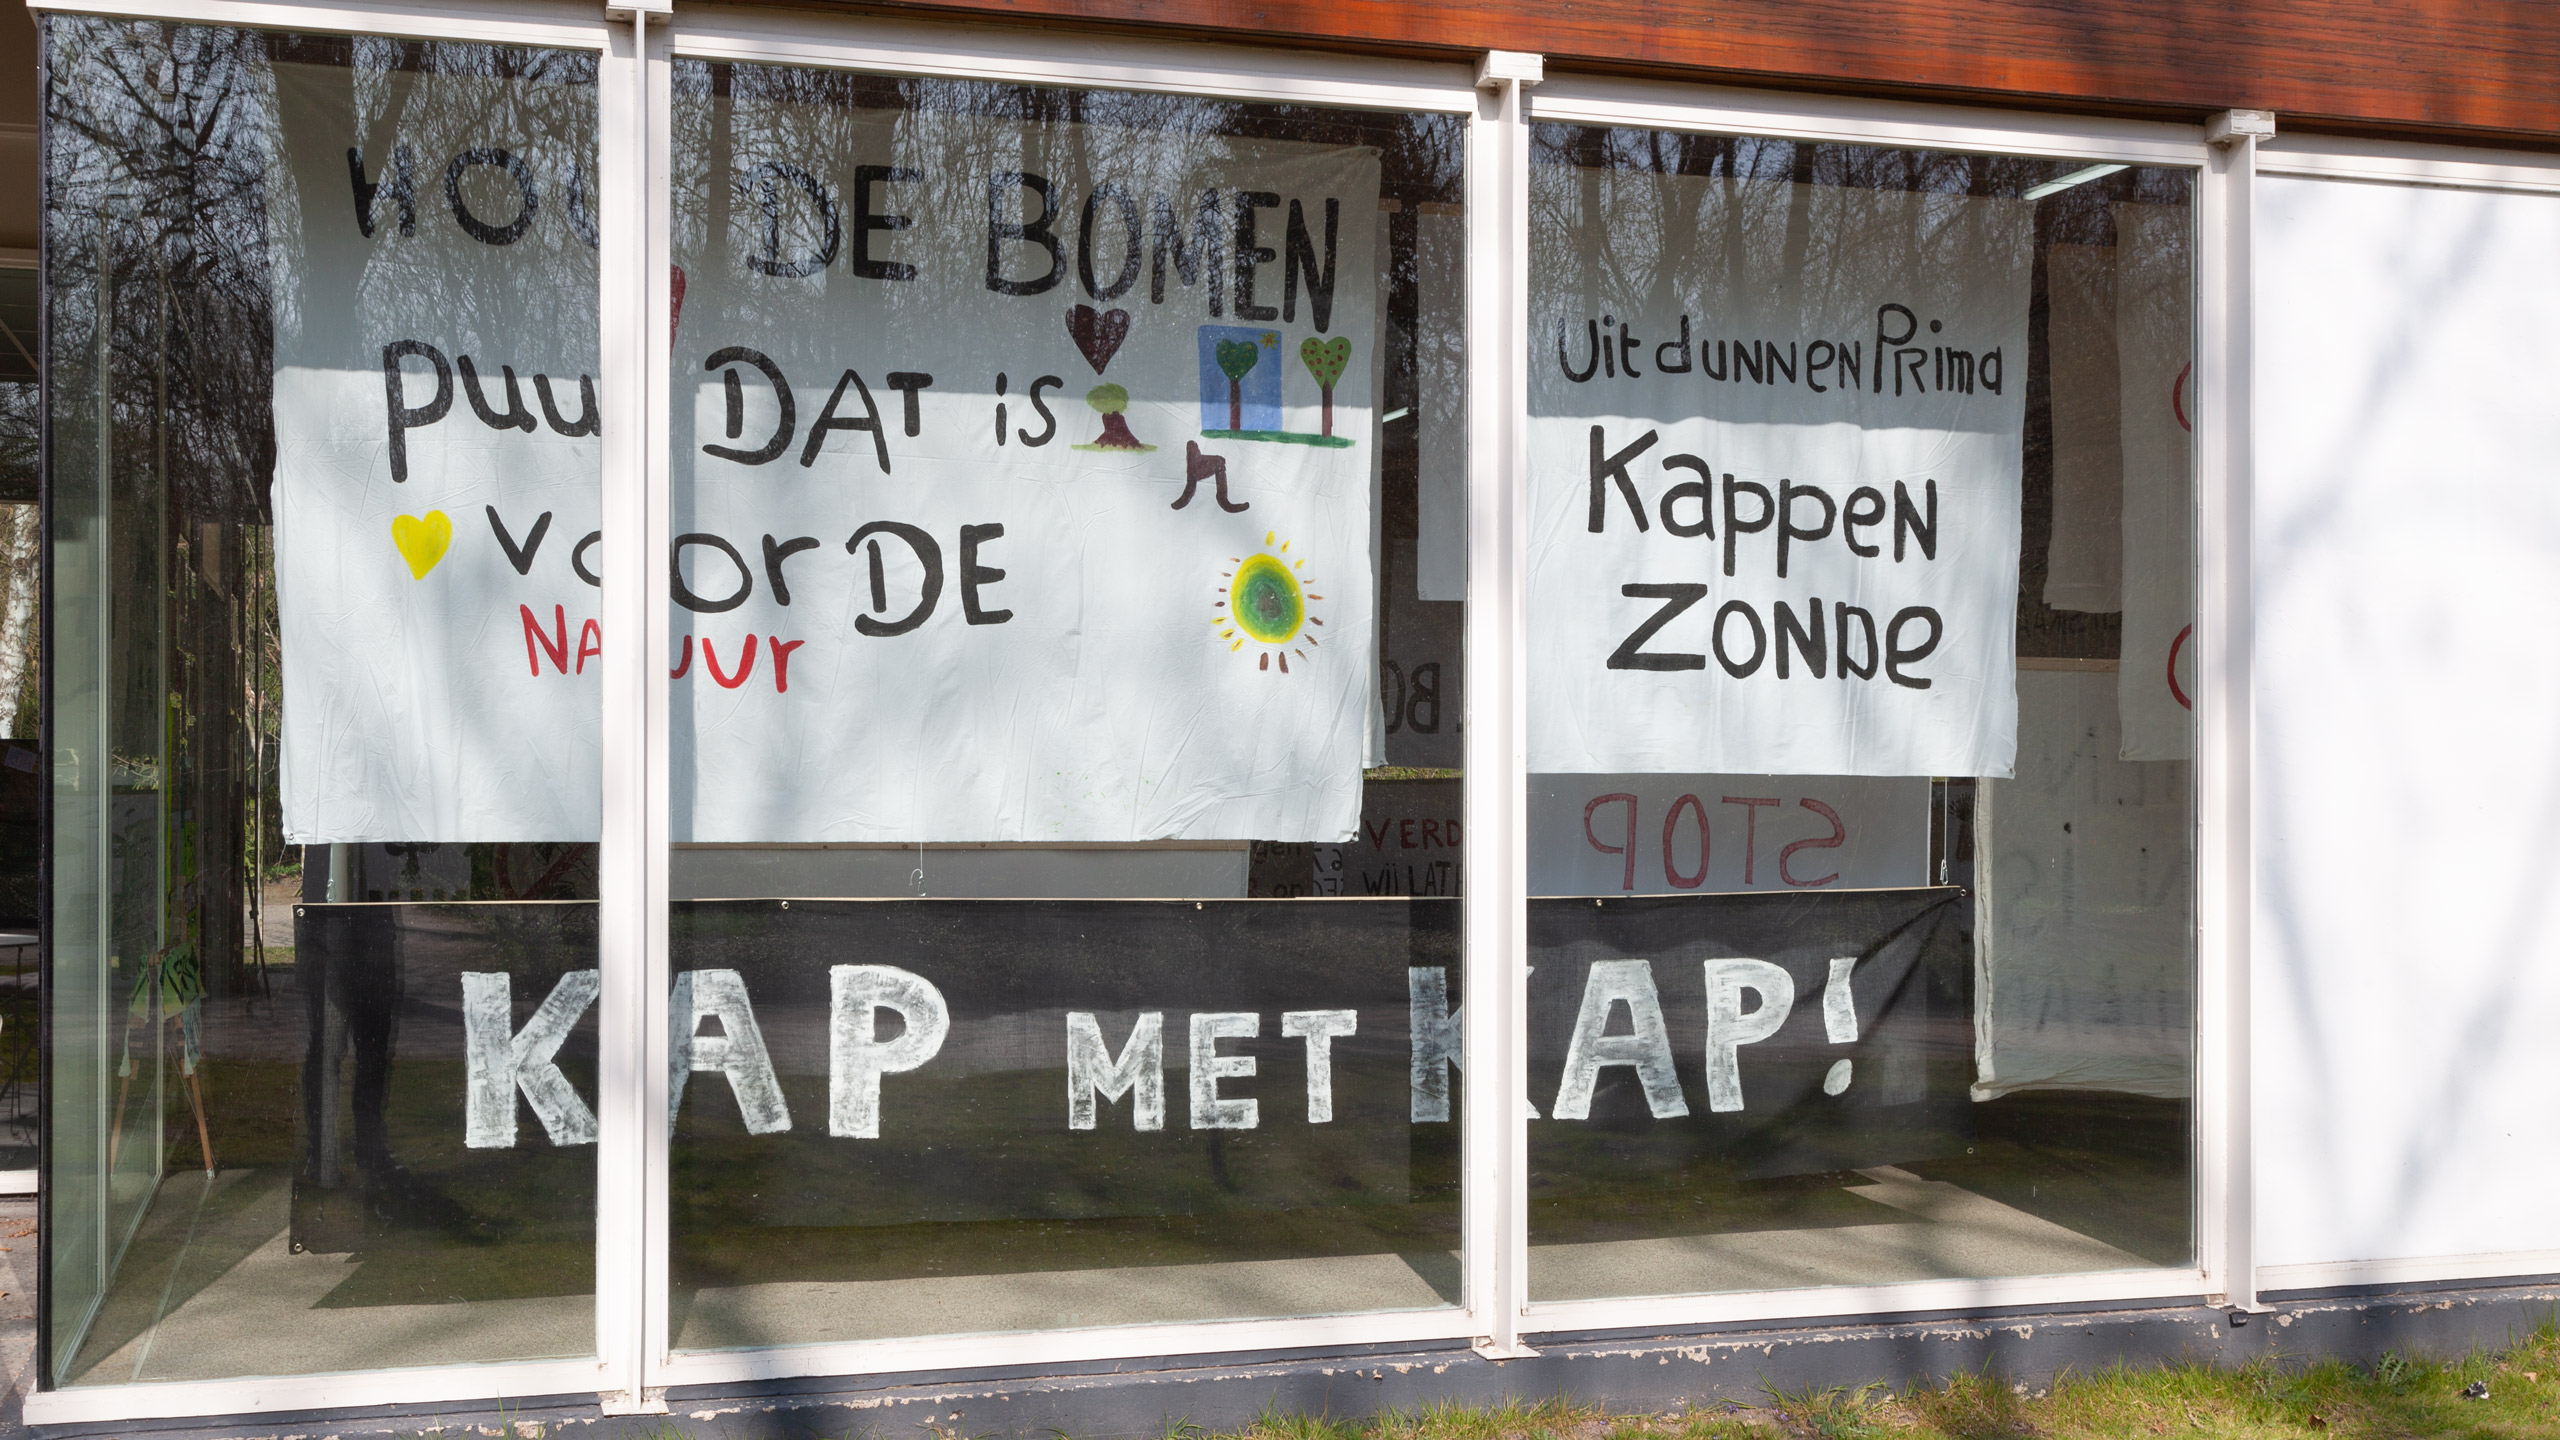 HOU DE BOMEN
puur DAT is
voor DE
NATUUR
Uitdunnen Prima
Kappen
ZONDe
STOP
VERD
WIJ LATE
BO
KAP MET KAP!